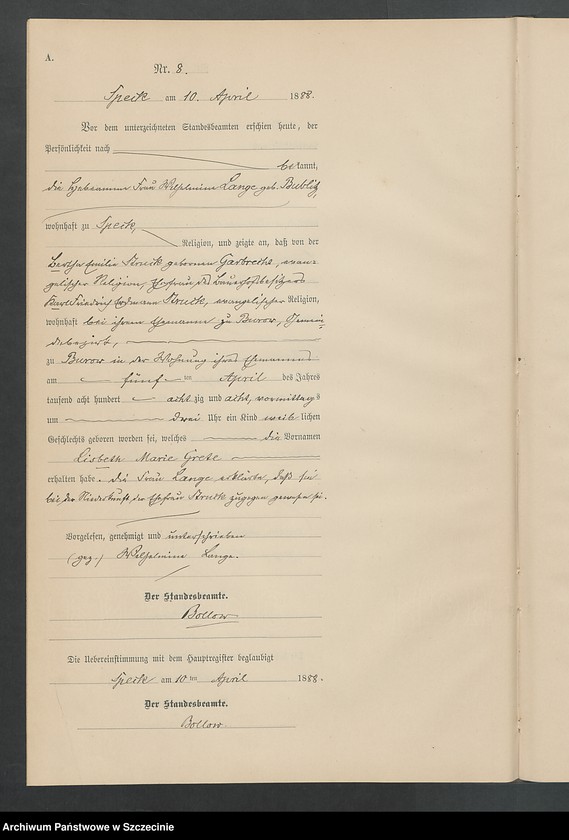 A.
Nr. 8.
Speck am 10. April 1888.
Vor dem unterzeichneten Standesbeamten erschien heute, der
Persönlichkeit nach
bekannt,
die Hebeamme Frau Wilhelmine Lange geb. Bublitz,
wohnhaft zu Speck,
Religion, und zeigte an, daß von der
Bertha Emilie Struck geborenen Garbrecht, evan-
gelischer Religion, Ehefrau des Bauerhofsbesitzers
Karl Friedrich Erdmann Struck, evangelischer Religion,
wohnhaft bei ihrem Ehemanne zu Burow, Gemein-
debezirk,
zu Burow in der Wohnung ihres Ehemannes
am fünften April des Jahres
tausend acht hundert achtzig und acht, vormittags
um drei Uhr ein Kind weiblichen
Geschlechts geboren worden sei, welches die Vornamen
Lisbeth Marie Grete
erhalten habe. Die Frau Lange erklärte, daß sie
bei der Niederkunft der Ehefrau Struck zugegen gewesen sei.
Vorgelesen, genehmigt und unterschrieben
(gez.) Wilhelmine Lange.
Der Standesbeamte.
Bollow
Die Uebereinstimmung mit dem Hauptregister beglaubigt
Speck am 10ten April 1888.
Der Standesbeamte.
Bollow.
Archiwum Państwowe w Szczecinie